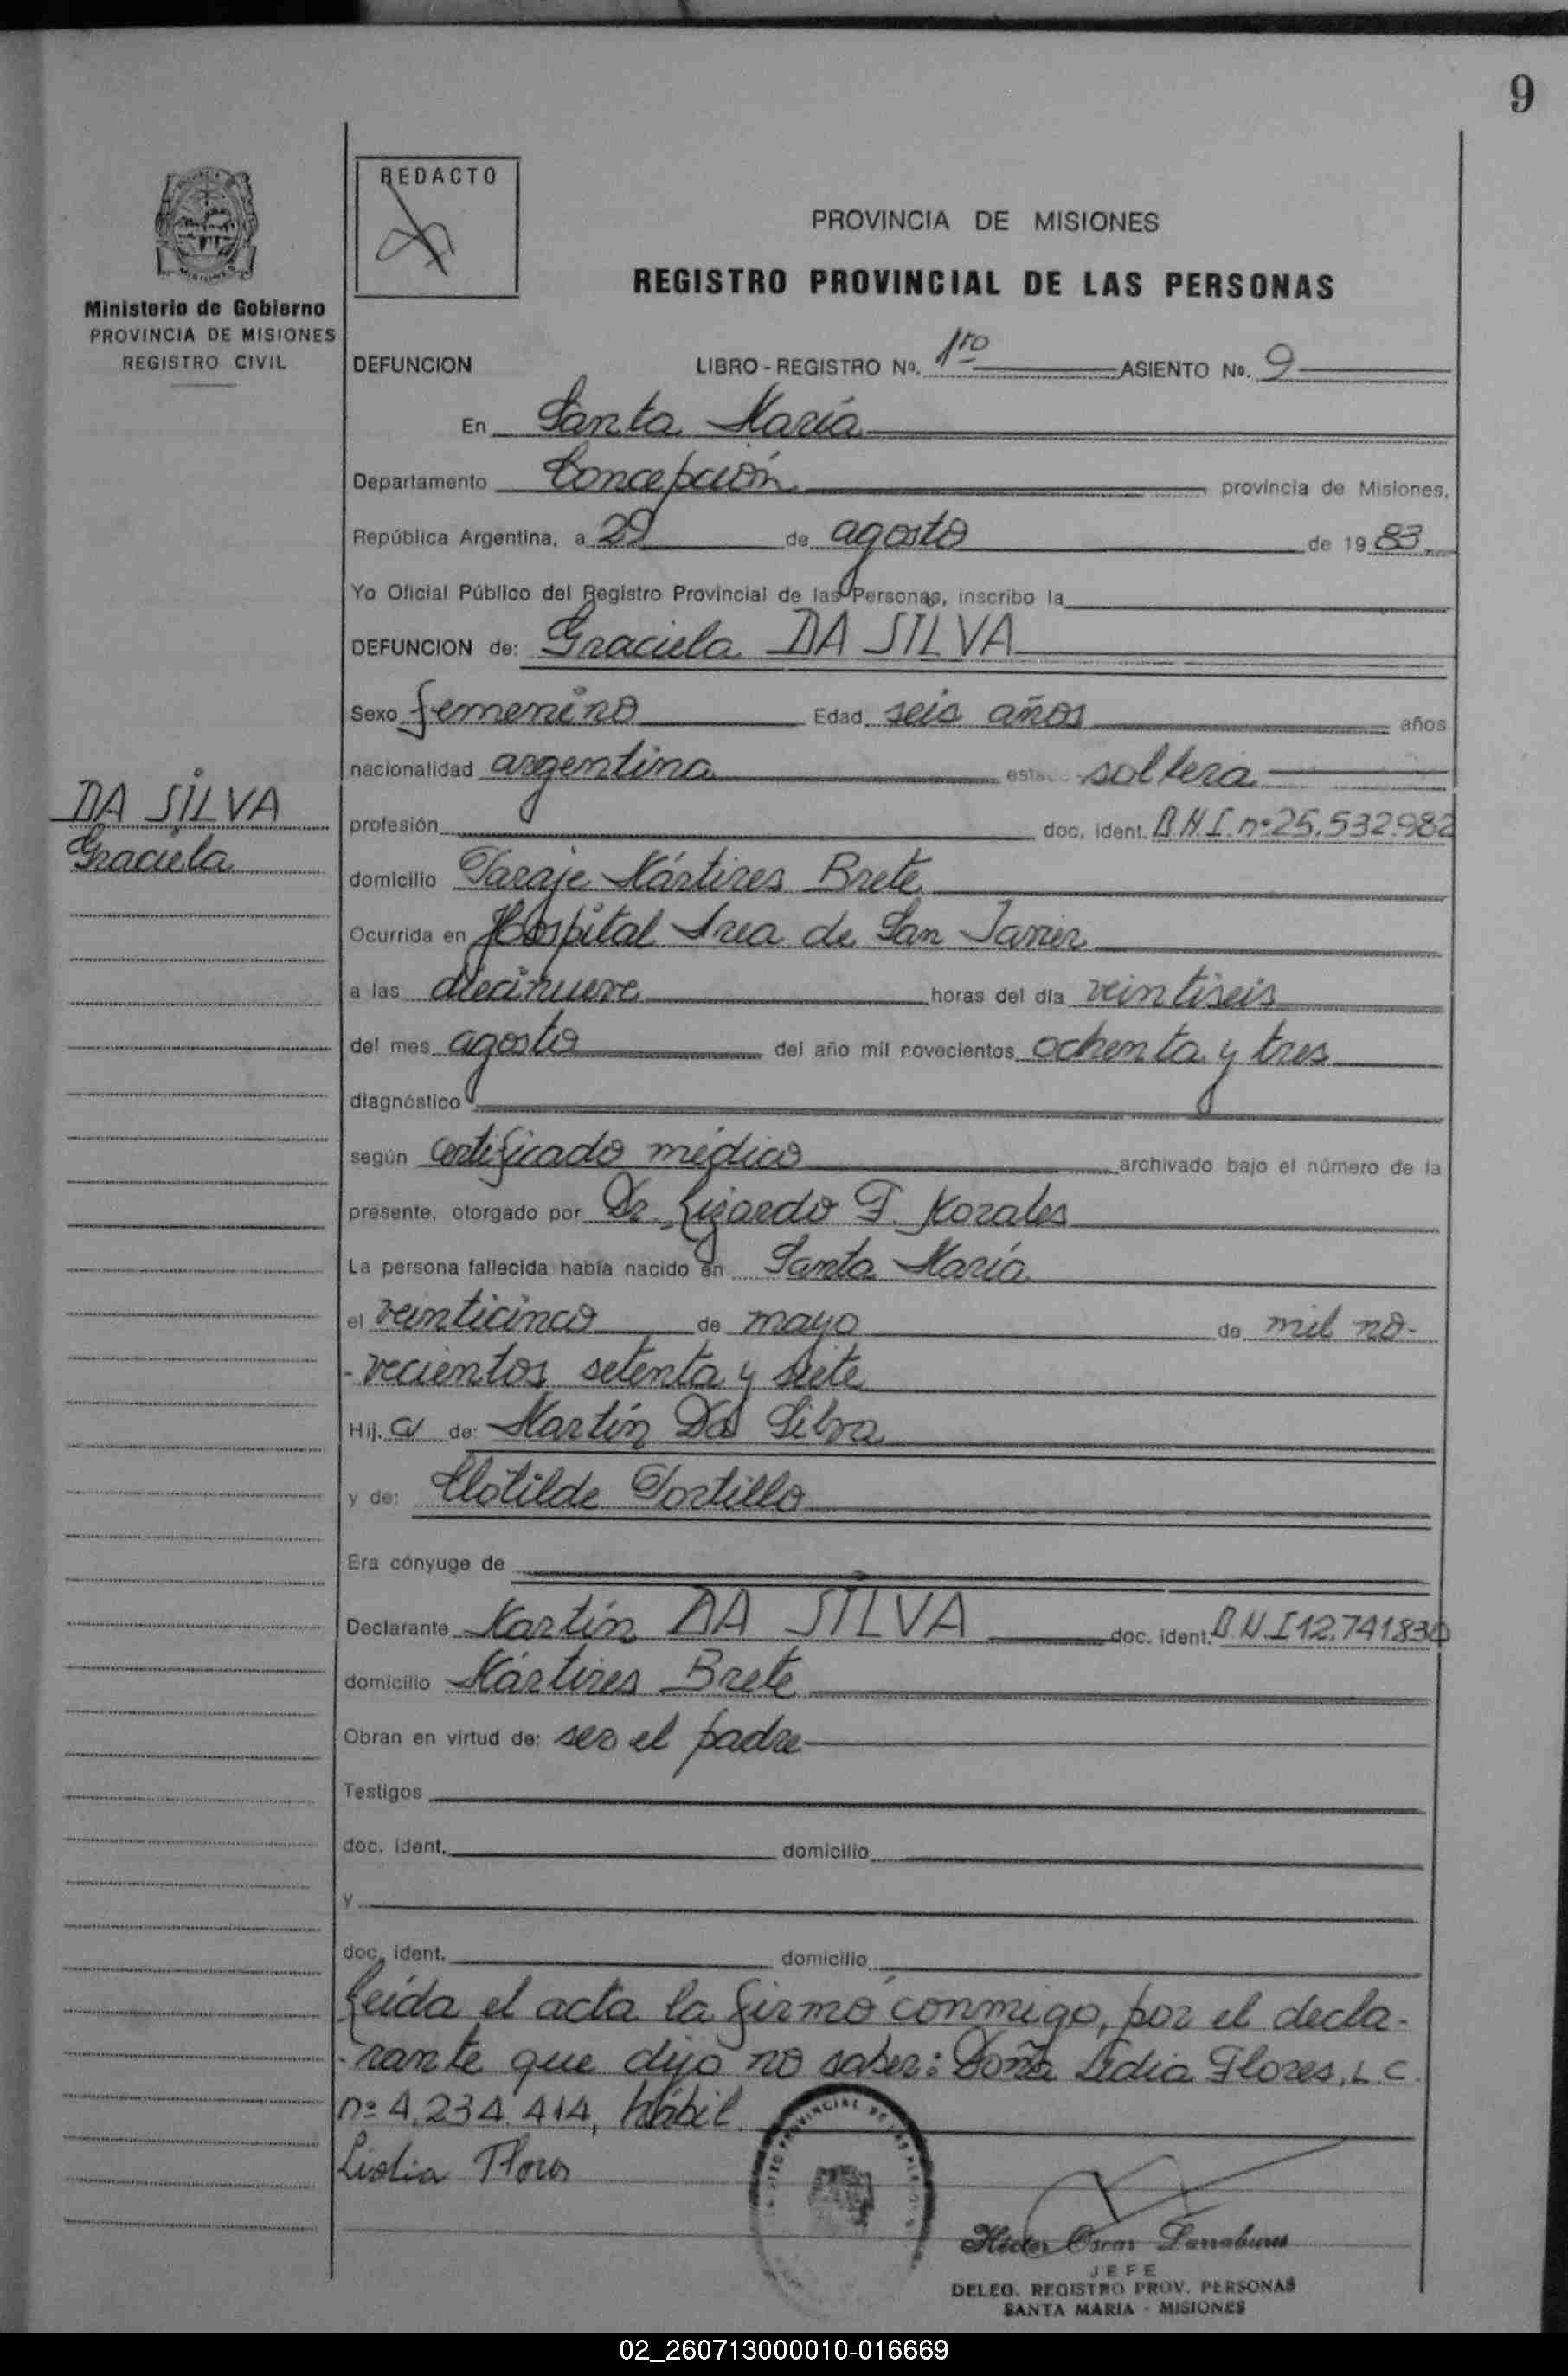 9
REDACTO
PROVINCIA DE MISIONES
REGISTRO PROVINCIAL DE LAS PERSONAS
Ministerio de Gobierno
PROVINCIA DE MISIONES
REGISTRO CIVIL
DEFUNCION LIBRO - REGISTRO No. 1ro ASIENTO No. 9
En Santa María
Departamento Concepción provincia de Misiones,
República Argentina, a 29 de agosto de 1983.
Yo Oficial Público del Registro Provincial de las Personas, inscribo la
DEFUNCION de: Graciela DA SILVA
Sexo femenino Edad seis años años
nacionalidad argentina soltera
DA SILVA
Graciela
profesión doc. ident. D.N.I. nº 25.532.982
domicilio Paraje Mártires Brete
Ocurrida en Hospital Area de San Javier
a las diecinueve horas del día veintiseis
del mes agosto del año mil novecientos ochenta y tres
diagnóstico
según certificado médico archivado bajo el número de la
presente, otorgado por Dr. Lizardo F. Morales
La persona fallecida había nacido en Santa María
el veinticinco de mayo de mil no-
-vecientos setenta y siete
Hij.a de: Martín Da Silva
y de: Clotilde Portillo
Era cónyuge de
Declarante Martín DA SILVA doc. ident. D.N.I 12.741.830
domicilio Mártires Brete
Obran en virtud de: ser el padre
Testigos
doc. ident. domicilio
y
doc. ident. domicilio
Leída el acta la firmó conmigo, por el decla-
-rante que dijo no saber: Doña Lidia Flores, L.C.
nº 4.234.414, hábil.
Lidia Flores
Héctor Oscar
JEFE
DELEG. REGISTRO PROV. PERSONAS
SANTA MARIA - MISIONES
02_260713000010-016669